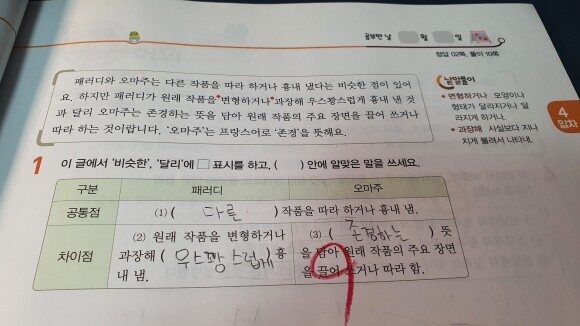 공부한 날 월 일
정답 02쪽, 풀이 10쪽
패러디와 오마주는 다른 작품을 따라 하거나 흉내 냈다는 비슷한 점이 있어
요. 하지만 패러디가 원래 작품을 *변형하거나 *과장해 우스꽝스럽게 흉내 낸 것
과 달리 오마주는 존경하는 뜻을 담아 원래 작품의 주요 장면을 끌어 쓰거나
따라 하는 것이랍니다. '오마주'는 프랑스어로 '존경'을 뜻해요.
낱말풀이
* 변형하거나 모양이나
형태가 달라지거나 달
라지게 하거나.
* 과장해 사실보다 지나
치게 불려서 나타내.
4
일차
1 이 글에서 '비슷한', '달리'에 □ 표시를 하고, ( ) 안에 알맞은 말을 쓰세요.
구분 패러디 오마주
공통점 (1) ( 다른 ) 작품을 따라 하거나 흉내 냄.
차이점
(2) 원래 작품을 변형하거나
과장해 ( 우스꽝스럽게 ) 흉
내 냄.
(3) ( 존경하는 ) 뜻
을 담아 원래 작품의 주요 장면
을 끌어 쓰거나 따라 함.